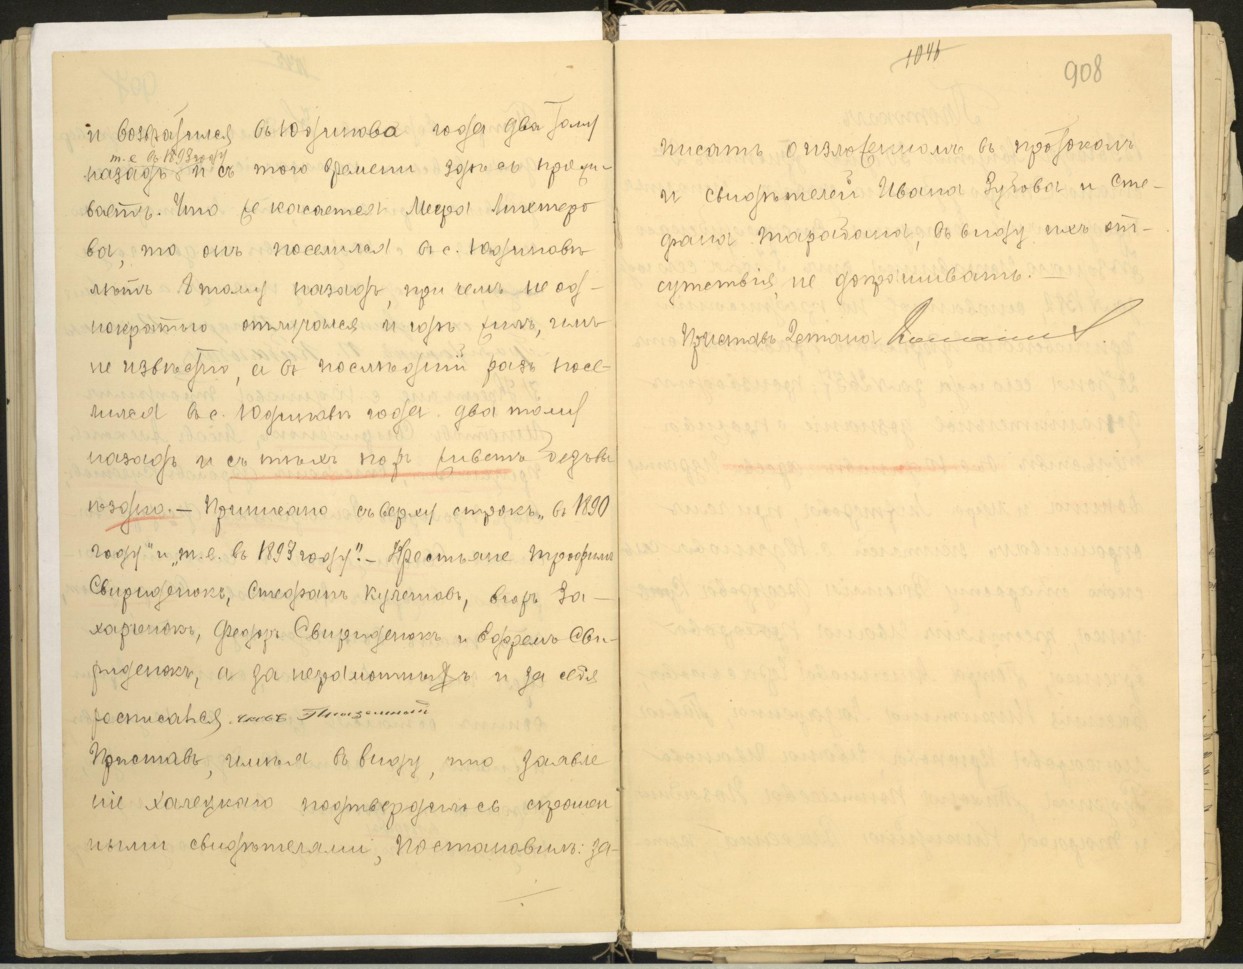 и возвратился въ Юдиново года два тому
т.е. въ 1893 году
назадъ и съ того времени здѣсь прожи-
ваетъ. Что же касается Меера Лихтеро
ва, то онъ поселился въ с. Юдиновѣ
лѣтъ 8 тому назадъ, при чемъ не од-
нократно отлучался и гдѣ жилъ, имъ
не извѣстно, а въ послѣдній разъ посе-
лился въ с. Юдиновѣ года два тому
назадъ и съ тѣхъ поръ живетъ безвы
ѣздно. – Приписано сверху строкъ „въ 1890
году" и „т.е. въ 1893 году". – Крестьяне Трофимъ
Свириденокъ, Стефанъ Кулешовъ, Егоръ За-
харенокъ, Федоръ Свириденокъ и Ефремъ Сви-
риденокъ, а за неграмотныхъ и за себя
росписался
Приставъ, имѣя въ виду, что заявле
ніе Халецкаго подтвердилось спрошен
ными свидѣтелями, постановилъ: за-
1046
908
писать о изложенномъ въ протоколъ
и свидѣтелей Ивана Зубова и Сте-
фана Тарабана, въ виду ихъ от-
сутствія, не допрашивать.
Приставъ 2 стана